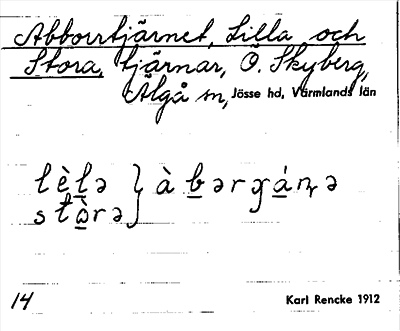 Abborrtjärnet, Lilla och
Stora, tjärnar, Ö. Skyberg,
Älgå sn, Jösse hd, Värmlands län
lèlə } à bərɣánə
stàrə
14
Karl Rencke 1912